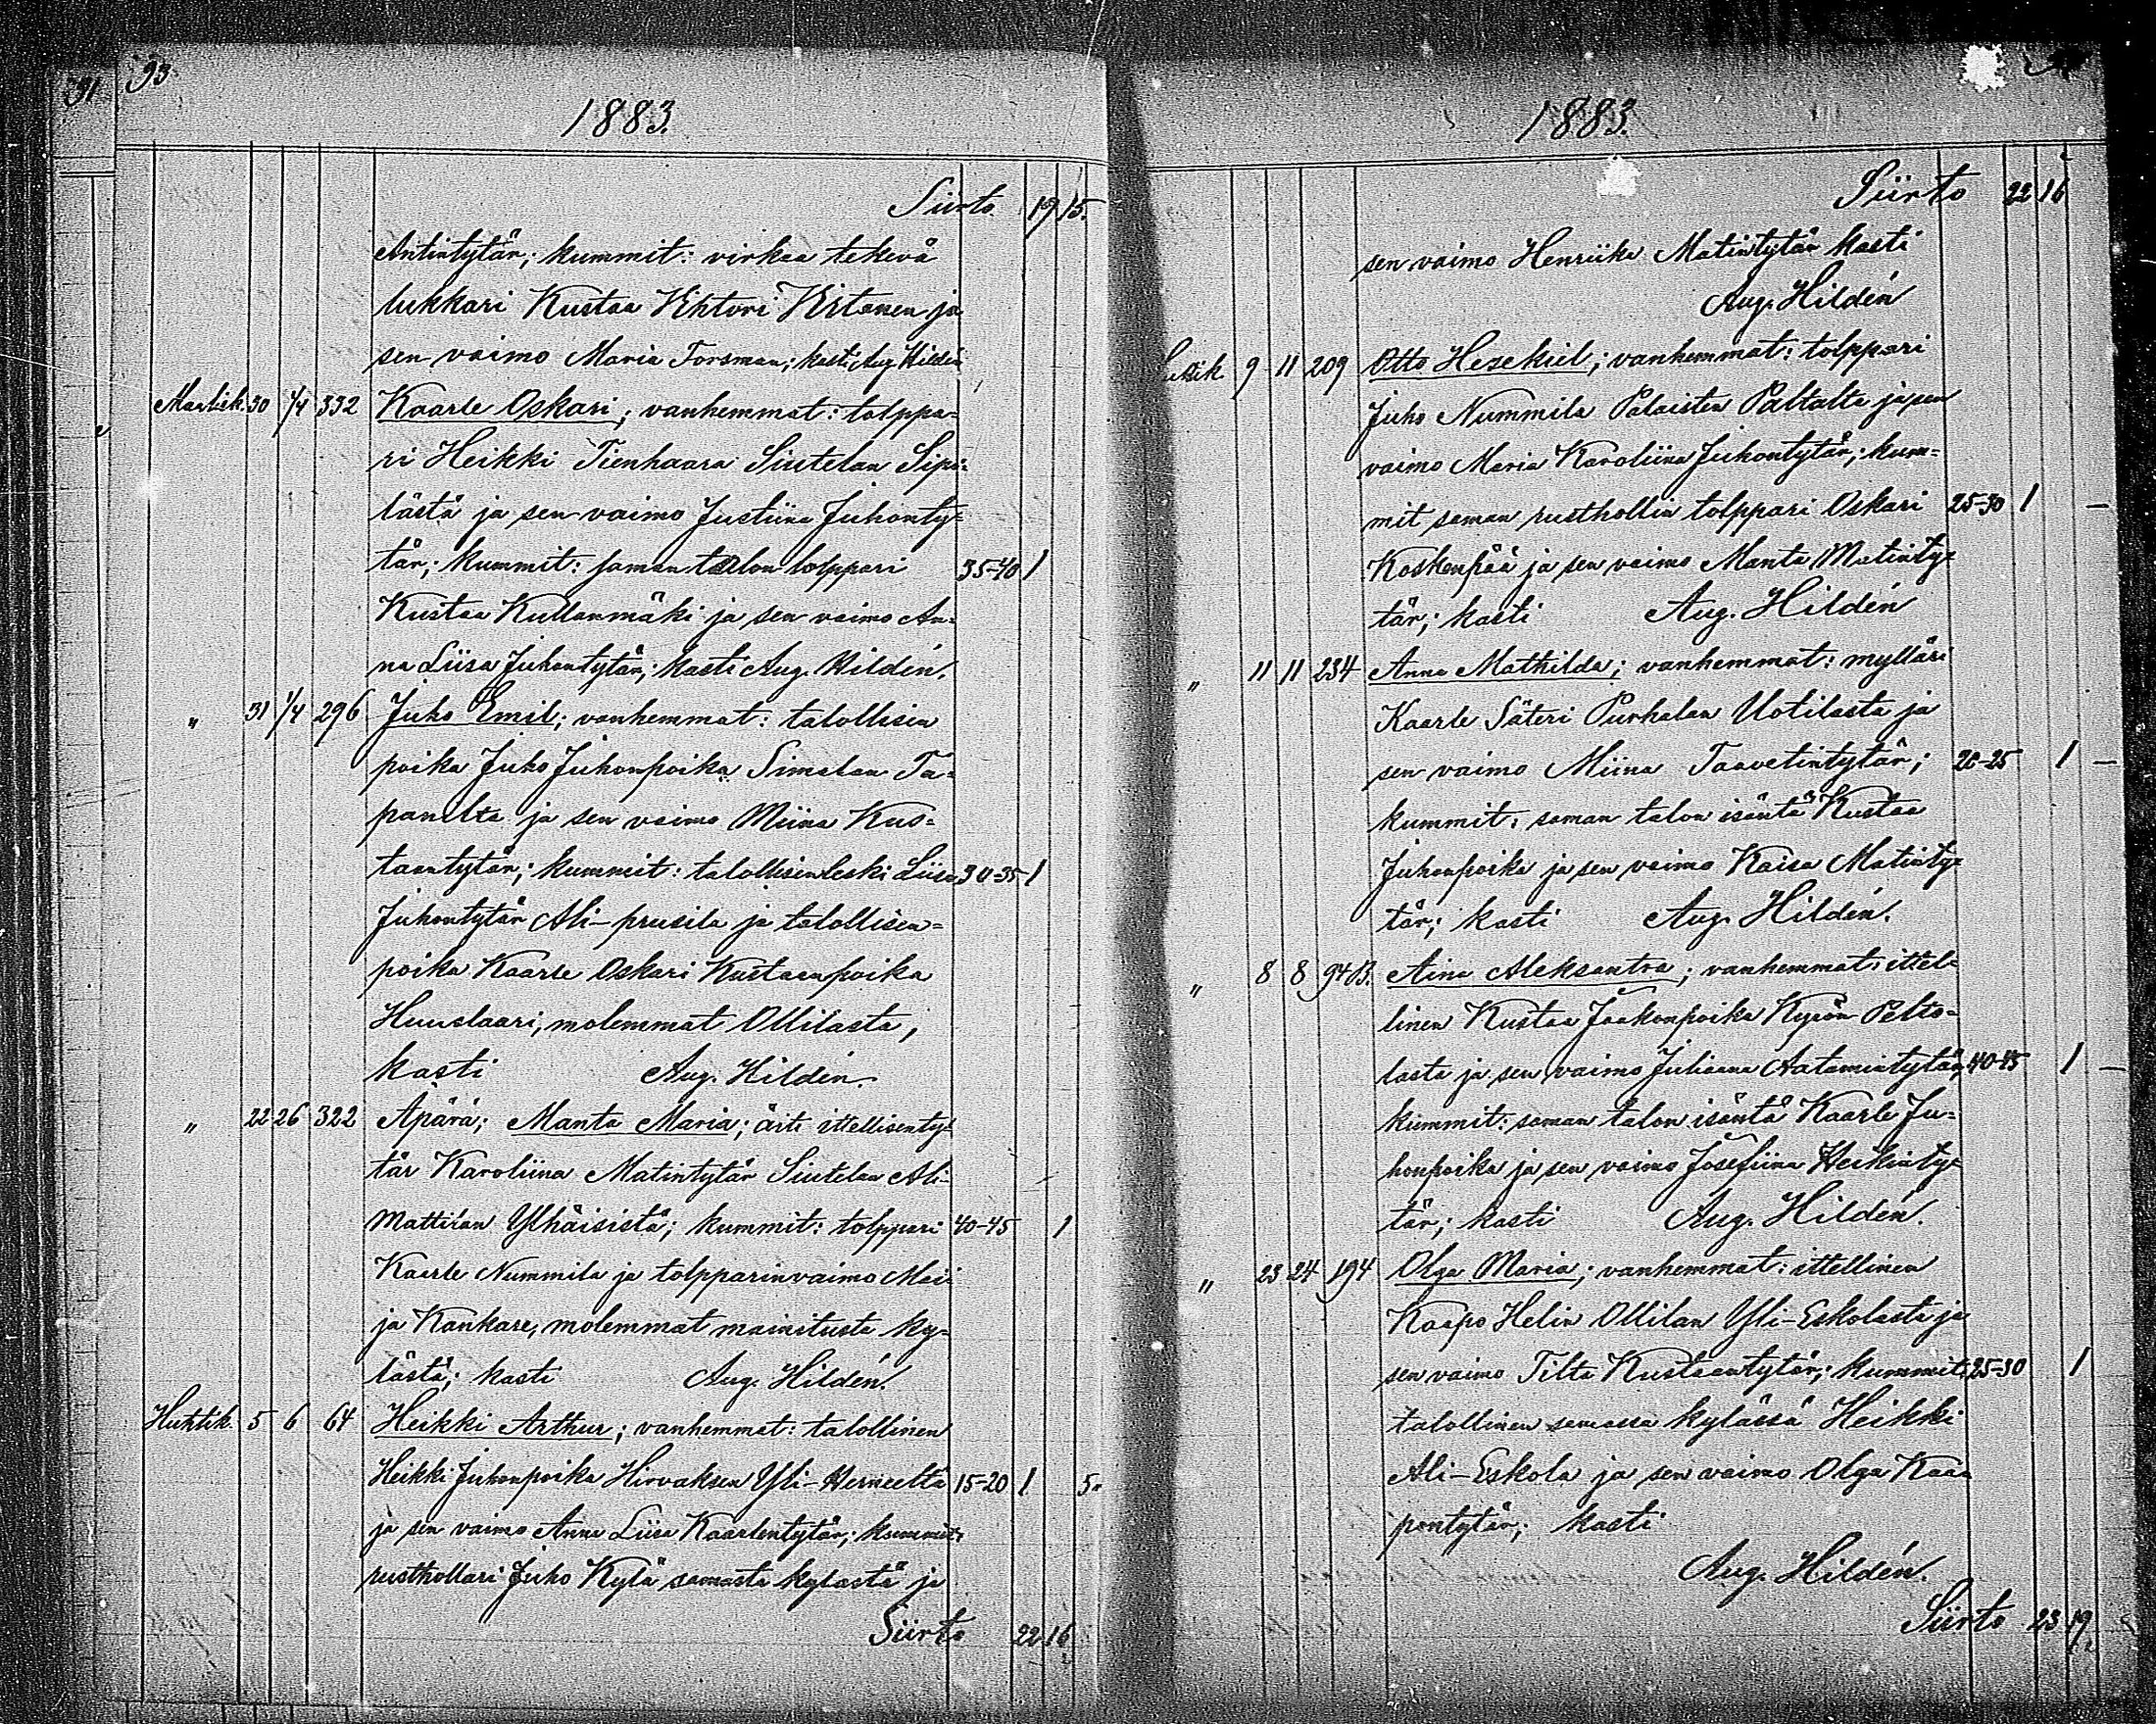 31 93
1883.
Siirto 19 15.
Antintytär; kummit: virkaa tekevä
lukkari Kustaa Vihtori Virtanen ja
sen vaimo Maria Forsman; kasti Aug Hildén
Maalisk. 30 1/4 332 Kaarle Oskari; vanhemmat: tolppa-
ri Heikki Tienhaara Sintelan Sipi-
lästä ja sen vaimo Justiina Juhonty-
tär; kummit: saman talon tolppari 35-40 1
Kustaa Kullanmäki ja sen vaimo An-
na Liisa Juhontytär; kasti Aug. Hildén.
" 31 1/4 296 Juho Emil; vanhemmat: talollisen
poika Juho Juhonpoika Simalan Ta-
panilta ja sen vaimo Miina Kus-
taantytär; kummit: talollisen leski Liisa 30-35 1
Juhontytär Ali-prusila ja talollisen-
poika Kaarle Oskari Kustaanpoika
Huuslaari, molemmat Ollilasta;
kasti Aug. Hildén.
" 22 26 322 Äpärä; Manta Maria; äiti ittellisenty-
tär Karoliina Matintytär Sintelan Ali-
Mattilan Ylhäisistä; kummit: tolppari 40-45 1
Kaarle Nummila ja tolpparinvaimo Mai-
ja Kankare, molemmat mainitusta ky-
lästä; kasti Aug. Hildén.
Huhtik. 5 6 64 Heikki Arthur; vanhemmat: talollinen
Heikki Juhonpoika Hirvaksen Yli-Herneeltä 15-20 1 5.
ja sen vaimo Anna Liisa Kaarlentytär; kummit:
rusthollari Juho Kylä samasta kylästä ja
Siirto 22 16
1883.
Siirto 22 16
sen vaimo Henriika Matintytär kasti
Aug. Hildén
9 11 209 Otto Hesekiel; vanhemmat: tolppari
Juho Nummila Palaisten Paltalta ja sen
vaimo Maria Karoliina Juhontytär; kum-
mit saman rusthollin tolppari Oskari 25-30 1 —
Koskenpää ja sen vaimo Manta Matinty-
tär; kasti Aug. Hildén
" 11 11 234 Anna Mathilda; vanhemmat: mylläri
Kaarle Säteri Purhalan Uotilasta ja
sen vaimo Miina Taavetintytär; 20-25 1 —
kummit: saman talon isäntä Kustaa
Juhonpoika ja sen vaimo Kaisa Matinty-
tär; kasti Aug. Hildén.
" 8 8 94 B. Aina Aleksantra; vanhemmat: ittel-
linen Kustaa Jaakonpoika Kyrön Pelto-
lasta ja sen vaimo Juliaana Aatamintytär; 40-45 1 —
kummit: saman talon isäntä Kaarle Ju-
honpoika ja sen vaimo Josefiina Heikinty-
tär; kasti Aug. Hildén.
" 23 24 194 Olga Maria; vanhemmat: ittellinen
Kaapo Helin Ollilan Yli-Eskolasta ja
sen vaimo Tilta Kustaantytär; kummit: 25-30 1
talollinen samassa kylässä Heikki
Ali-Eskola ja sen vaimo Olga Kaa-
pontytär; kasti
Aug. Hildén.
Siirto 23 19